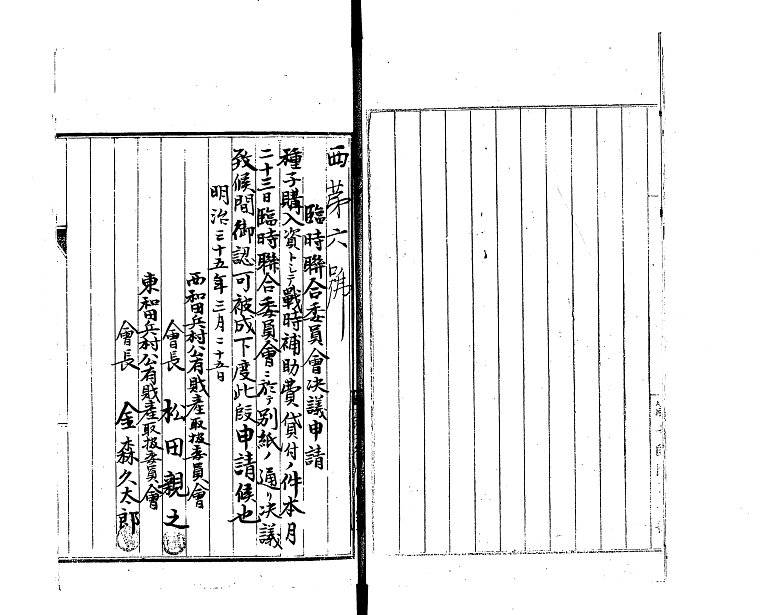 西第六號
臨時聯合委員會决議申請
種子購入資トシテ戰時補助費貸付ノ件本月
二十三日臨時聯合委員會ニ於テ別紙ノ通リ决議
致候間御認可被成下度此段申請候也
明治三十五年三月二十五日
西和田兵村公有財產取扱委員會
會長 松田親之
東和田兵村公有財產取扱委員會
會長 金森久太郎